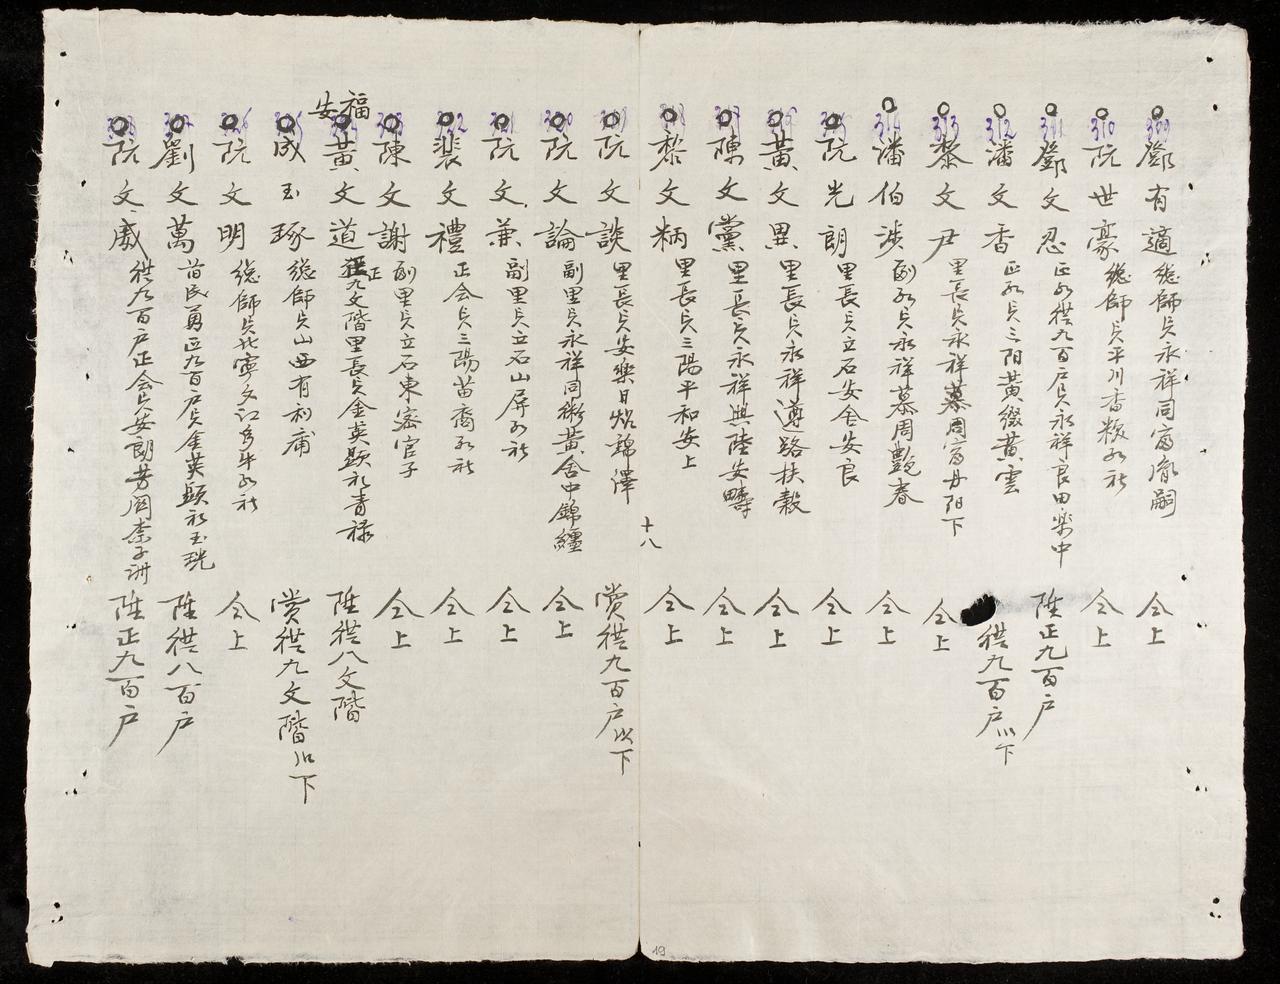 309 鄧有適 總師員永祥同富胤嗣 仝上
310 阮世豪 總師員平川香粄社 仝上
311 鄧文忍 正供九百戶員永祥良田樂中 陞正九百戶
312 潘文香 正員三阳黃綴黃雲 供九百戶以下
313 黎文尹 里長員永祥慕周富丹阳下 仝上
314 潘伯涉 副員永祥慕周艷春 仝上
315 阮光朗 里長員立石安舍安良 仝上
316 黃文異 里長員永祥遵路扶穀 仝上
317 陳文黨 里長員永祥興陸安疇 仝上
318 黎文柄 里長員三陽平和安上 仝上
十八
319 阮文談 里長員安樂日昭錦澤 賞供九百戶以下
320 阮文論 副里員永祥同衛黃舍中錦纏 仝上
321 阮文兼 副里員立石山屏社 仝上
322 裴文禮 正会員三陽苗裔社 仝上
323 陳文謝 副里員立石東密官子 仝上
安福
324 黃文道 正九文階里長員金英顯礼青祿 陞供八文階
325 成玉琢 總師員山西有利甫 賞供九文階以下
326 阮文明 總師員北寧文江多牛社 仝上
327 劉文萬 首民勇正九百戶員金英顯礼玉珖 陞供八百戶
328 阮文威 供九百戶正会員安朗芳閣柰子洲 陞正九百戶
19